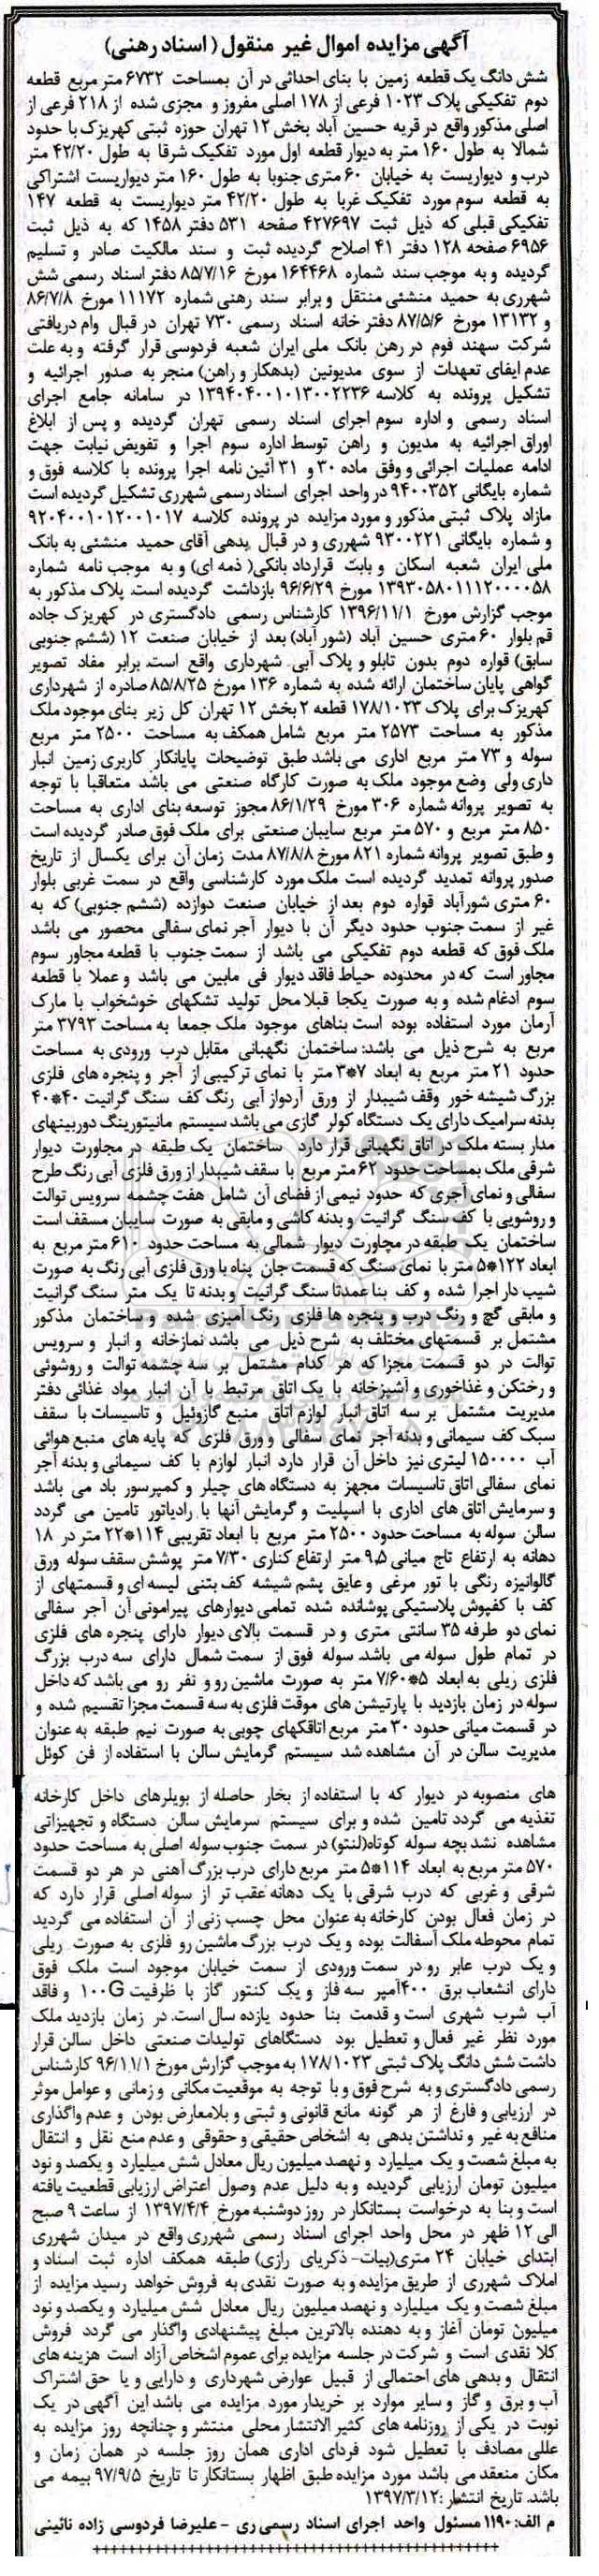 آگهی مزایده اموال غیر منقول (اسناد رهنی)
شش دانگ یک قطعه زمین با بنای احداثی در آن بمساحت ۶۷۳۲ متر مربع قطعه
دوم تفکیکی پلاک ۱۰۲۳ فرعی از ۱۷۸ اصلی مفروز و مجزی شده از ۲۱۸ فرعی از
اصلی مذکور واقع در قریه حسین آباد بخش ۱۲ تهران حوزه ثبتی کهریزک با حدود
شمالا به طول ۱۶۰ متر به دیوار قطعه اول مورد تفکیک شرقا به طول ۴۲/۲۰ متر
درب و دیواریست به خیابان ۶۰ متری جنوبا به طول ۱۶۰ متر دیواریست اشتراکی
به قطعه سوم مورد تفکیک غربا به طول ۴۲/۲۰ متر دیواریست به قطعه ۱۴۷
تفکیکی قبلی که ذیل ثبت ۴۲۷۶۹۷ صفحه ۵۳۱ دفتر ۱۴۵۸ که به ذیل ثبت
۶۹۵۶ صفحه ۱۲۸ دفتر ۴۱ اصلاح گردیده ثبت و سند مالکیت صادر و تسلیم
گردیده و به موجب سند شماره ۱۶۴۴۶۸ مورخ ۸۵/۷/۱۶ دفتر اسناد رسمی شش
شهرری به حمید منشئی منتقل و برابر سند رهنی شماره ۱۱۱۷۲ مورخ ۸۶/۷/۸
و ۱۳۱۳۲ مورخ ۸۷/۵/۶ دفتر خانه اسناد رسمی ۷۳۰ تهران در قبال وام دریافتی
شرکت سهند فوم در رهن بانک ملی ایران شعبه فردوسی قرار گرفته و به علت
عدم ایفای تعهدات از سوی مدیونین (بدهکار و راهن) منجر به صدور اجرائیه و
تشکیل پرونده به کلاسه ۱۳۹۴۰۴۰۰۱۰۱۳۰۰۲۲۳۶ در سامانه جامع اجرای
اسناد رسمی و اداره سوم اجرای اسناد رسمی تهران گردیده و پس از ابلاغ
اوراق اجرائیه به مدیون و راهن توسط اداره سوم اجرا و تفویض نیابت جهت
ادامه عملیات اجرائی و وفق ماده ۳۰ و ۳۱ آئین نامه اجرا پرونده با کلاسه فوق و
شماره بایگانی ۹۴۰۰۳۵۲ در واحد اجرای اسناد رسمی شهرری تشکیل گردیده است
مازاد پلاک ثبتی مذکور و مورد مزایده در پرونده کلاسه ۹۲۰۴۰۰۱۰۱۲۰۰۱۰۱۷
و شماره بایگانی ۹۳۰۰۲۲۱ شهرری و در قبال بدهی آقای حمید منشئی به بانک
ملی ایران شعبه اسکان و بابت قرارداد بانکی( ذمه ای) و به موجب نامه شماره
۱۳۹۳۰۵۸۰۱۱۱۲۰۰۰۰۵۸ مورخ ۹۶/۶/۲۹ بازداشت گردیده است. پلاک مذکور به
موجب گزارش مورخ ۱۳۹۶/۱۱/۱ کارشناس رسمی دادگستری در کهریزک جاده
قم بلوار ۶۰ متری حسین آباد (شورآباد) بعد از خیابان صنعت ۱۲ (ششم جنوبی
سابق) قواره دوم بدون تابلو و پلاک آبی شهرداری واقع است. برابر مفاد تصویر
گواهی پایان ساختمان ارائه شده به شماره ۱۳۶ مورخ ۸۵/۸/۲۵ صادره از شهرداری
کهریزک برای پلاک ۱۷۸/۱۰۲۳ قطعه ۲ بخش ۱۲ تهران کل زیر بنای موجود ملک
مذکور به مساحت ۲۵۷۳ متر مربع شامل همکف به مساحت ۲۵۰۰ متر مربع
سوله و ۷۳ متر مربع اداری می باشد طبق توضیحات پایانکار کاربری زمین انبار
داری ولی وضع موجود ملک به صورت کارگاه صنعتی می باشد متعاقبا با توجه
به تصویر پروانه شماره ۳۰۶ مورخ ۸۶/۱/۲۹ مجوز توسعه بنای اداری به مساحت
۸۵۰ متر مربع و ۵۷۰ متر مربع سایبان صنعتی برای ملک فوق صادر گردیده است
و طبق تصویر پروانه شماره ۸۲۱ مورخ ۸۷/۸/۸ مدت زمان آن برای یکسال از تاریخ
صدور پروانه تمدید گردیده است ملک مورد کارشناسی واقع در سمت غربی بلوار
۶۰ متری شورآباد قواره دوم بعد از خیابان صنعت دوازده (ششم جنوبی) که به
غیر از سمت جنوب حدود دیگر آن با دیوار آجر نمای سفالی محصور می باشد
ملک فوق که قطعه دوم تفکیکی می باشد از سمت جنوب با قطعه مجاور سوم
مجاور است که در محدوده حیاط فاقد دیوار فی مابین می باشد و عملا با قطعه
سوم ادغام شده و به صورت یکجا قبلا محل تولید تشکهای خوشخواب با مارک
آرمان مورد استفاده بوده است بناهای موجود ملک جمعا به مساحت ۳۷۹۳ متر
مربع به شرح ذیل می باشد: ساختمان نگهبانی مقابل درب ورودی به مساحت
حدود ۲۱ متر مربع به ابعاد ۷*۳ متر با نمای ترکیبی از آجر و پنجره های فلزی
بزرگ شیشه خور وقف شیبدار از ورق آردواز آبی رنگ کف سنگ گرانیت ۴۰*۴۰
بدنه سرامیک دارای یک دستگاه کولر گازی می باشد سیستم مانیتورینگ دوربینهای
مدار بسته ملک در اتاق نگهبانی قرار دارد ساختمان یک طبقه در مجاورت دیوار
شرقی ملک بمساحت حدود ۶۲ متر مربع با سقف شیبدار از ورق فلزی آبی رنگ طرح
سفالی و نمای آجری که حدود نیمی از فضای آن شامل هفت چشمه سرویس توالت
و روشویی با کف سنگ گرانیت و بدنه کاشی و مابقی به صورت سایبان مسقف است
ساختمان یک طبقه در مجاورت دیوار شمالی به مساحت حدود ۶۱۰ متر مربع به
ابعاد ۱۲۲*۵ متر با نمای سنگ که قسمت جان پناه با ورق فلزی آبی رنگ به صورت
شیب دار اجرا شده و کف بنا عمدتا سنگ گرانیت و بدنه تا یک متر سنگ گرانیت
و مابقی گچ و رنگ درب و پنجره ها فلزی رنگ آمیزی شده و ساختمان مذکور
مشتمل بر قسمتهای مختلف به شرح ذیل می باشد نمازخانه و انبار و سرویس
توالت در دو قسمت مجزا که هر کدام مشتمل بر سه چشمه توالت و روشوئی
و رختکن و غذاخوری و آشپزخانه با یک اتاق مرتبط با آن انبار مواد غذائی دفتر
مدیریت مشتمل بر سه اتاق انبار لوازم اتاق منبع گازوئیل و تاسیسات با سقف
سبک کف سیمانی و بدنه آجر نمای سفالی و ورق فلزی که پایه های منبع هوائی
آب ۱۵۰۰۰۰ لیتری نیز داخل آن قرار دارد انبار لوازم با کف سیمانی و بدنه آجر
نمای سفالی اتاق تاسیسات مجهز به دستگاه های چیلر و کمپرسور باد می باشد
و سرمایش اتاق های اداری با اسپلیت و گرمایش آنها با رادیاتور تامین می گردد
سالن سوله به مساحت حدود ۲۵۰۰ متر مربع با ابعاد تقریبی ۱۱۴*۲۲ متر در ۱۸
دهانه به ارتفاع تاج میانی ۹.۵ متر ارتفاع کناری ۷/۳۰ متر پوشش سقف سوله ورق
گالوانیزه رنگی با تور مرغی و عایق پشم شیشه کف بتنی لیسه ای و قسمتهای از
کف با کفپوش پلاستیکی پوشانده شده تمامی دیوارهای پیرامونی آن آجر سفالی
نمای دو طرفه ۳۵ سانتی متری و در قسمت بالای دیوار دارای پنجره های فلزی
در تمام طول سوله می باشد. سوله فوق از سمت شمال دارای سه درب بزرگ
فلزی ریلی به ابعاد ۵*۷/۶۰ متر به صورت ماشین رو و نفر رو می باشد که داخل
سوله در زمان بازدید با پارتیشن های موقت فلزی به سه قسمت مجزا تقسیم شده و
در قسمت میانی حدود ۳۰ متر مربع اتاقکهای چوبی به صورت نیم طبقه به عنوان
مدیریت سالن در آن مشاهده شد سیستم گرمایش سالن با استفاده از فن کوئل
های منصوبه در دیوار که با استفاده از بخار حاصله از بویلرهای داخل کارخانه
تغذیه می گردد تامین شده و برای سیستم سرمایش سالن دستگاه و تجهیزاتی
مشاهده نشد بچه سوله کوتاه(لنتو) در سمت جنوب سوله اصلی به مساحت حدود
۵۷۰ متر مربع به ابعاد ۱۱۴*۵ متر مربع دارای درب بزرگ آهنی در هر دو قسمت
شرقی و غربی که درب شرقی با یک دهانه عقب تر از سوله اصلی قرار دارد که
در زمان فعال بودن کارخانه به عنوان محل چسب زنی از آن استفاده می گردید
تمام محوطه ملک آسفالت بوده و یک درب بزرگ ماشین رو فلزی به صورت ریلی
و یک درب عابر رو در سمت ورودی از سمت خیابان موجود است ملک فوق
دارای انشعاب برق ۴۰۰آمپر سه فاز و یک کنتور گاز با ظرفیت ۱۰۰G و فاقد
آب شرب شهری است و قدمت بنا حدود یازده سال است. در زمان بازدید ملک
مورد نظر غیر فعال و تعطیل بود دستگاهای تولیدات صنعتی داخل سالن قرار
داشت شش دانگ پلاک ثبتی ۱۷۸/۱۰۲۳ به موجب گزارش مورخ ۹۶/۱۱/۱ کارشناس
رسمی دادگستری و به شرح فوق و با توجه به موقعیت مکانی و زمانی و عوامل موثر
در ارزیابی و فارغ از هر گونه مانع قانونی و ثبتی و بلامعارض بودن و عدم واگذاری
منافع به غیر و نداشتن بدهی به اشخاص حقیقی و حقوقی و عدم منع نقل و انتقال
به مبلغ شصت و یک میلیارد و نهصد میلیون ریال معادل شش میلیارد و یکصد و نود
میلیون تومان ارزیابی گردیده و به دلیل عدم وصول اعتراض ارزیابی قطعیت یافته
است و بنا به درخواست بستانکار در روز دوشنبه مورخ ۱۳۹۷/۴/۴ از ساعت ۹ صبح
الی ۱۲ ظهر در محل واحد اجرای اسناد رسمی شهرری واقع در میدان شهرری
ابتدای خیابان ۲۴ متری(بیات- ذکریای رازی) طبقه همکف اداره ثبت اسناد و
املاک شهرری از طریق مزایده و به صورت نقدی به فروش خواهد رسید مزایده از
مبلغ شصت و یک میلیارد و نهصد میلیون ریال معادل شش میلیارد و یکصد و نود
میلیون تومان آغاز و به دهنده بالاترین مبلغ پیشنهادی واگذار می گردد فروش
کلا نقدی است و شرکت در جلسه مزایده برای عموم اشخاص آزاد است هزینه های
انتقال و بدهی های احتمالی از قبیل عوارض شهرداری و دارایی و یا حق اشتراک
آب و برق و گاز و سایر موارد بر خریدار مورد مزایده می باشد این آگهی در یک
نوبت در یکی از روزنامه های کثیر الانتشار محلی منتشر و چنانچه روز مزایده به
عللی مصادف با تعطیل شود فردای اداری همان روز جلسه در همان زمان و
مکان منعقد می باشد مورد مزایده طبق اظهار بستانکار تا تاریخ ۹۷/۹/۵ بیمه می
باشد. تاریخ انتشار :۱۳۹۷/۳/۱۲
م الف: ۱۱۹۰ مسئول واحد اجرای اسناد رسمی ری - علیرضا فردوسی زاده نائینی